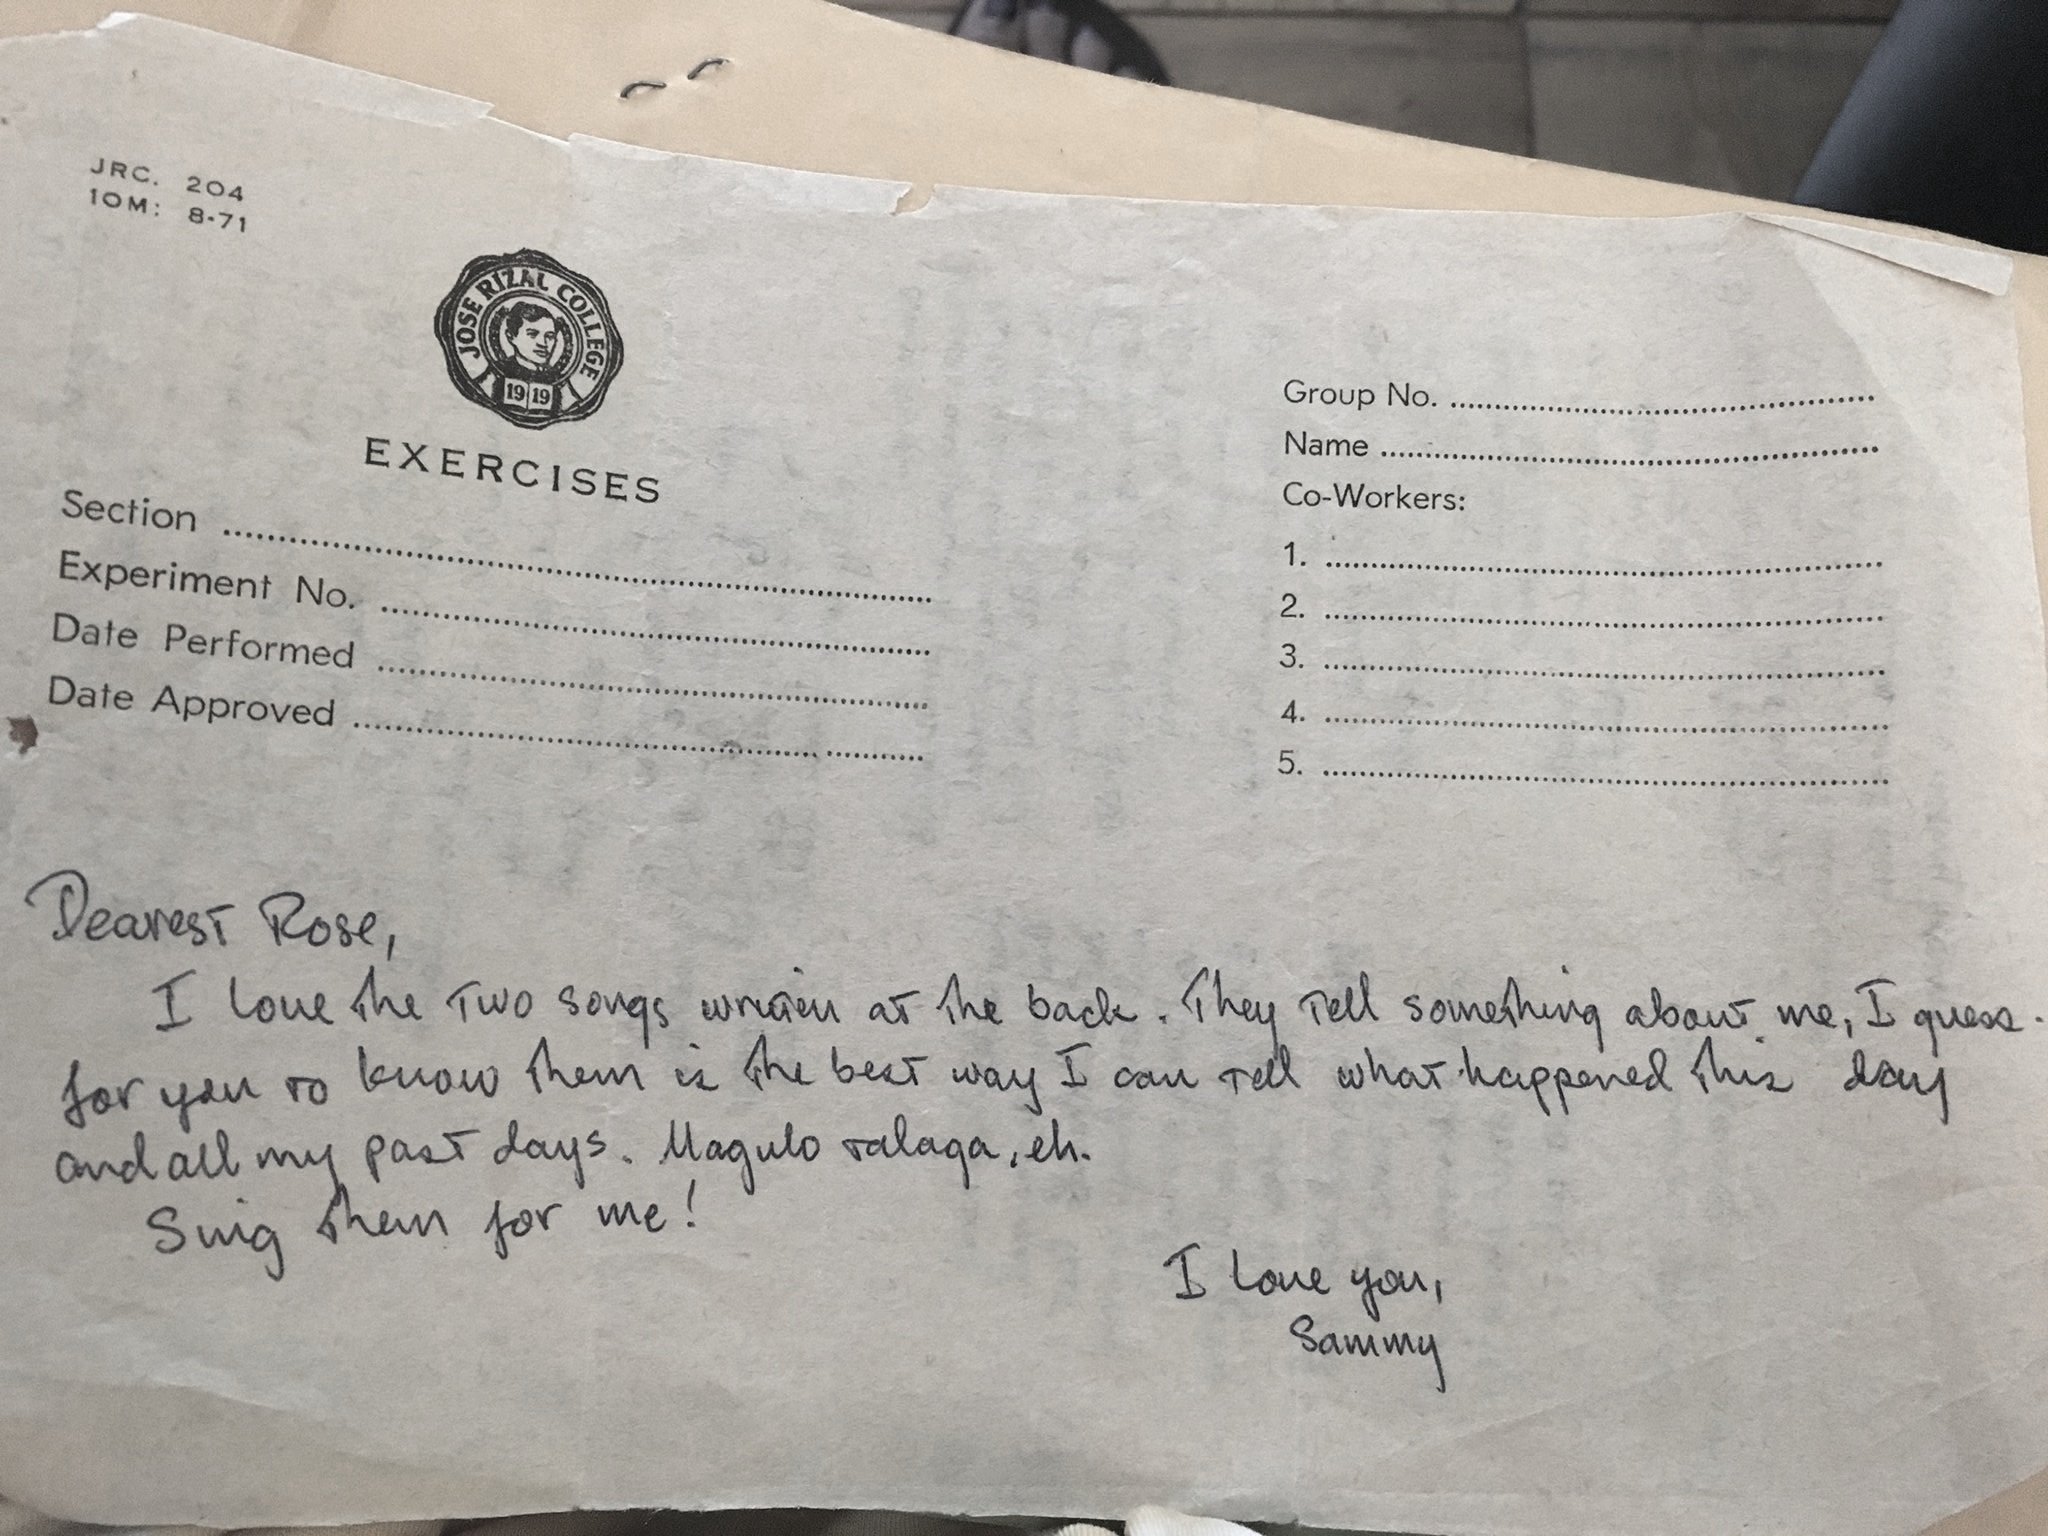 JRC. 204
10M: 8-71
JOSE RIZAL COLLEGE
1919
EXERCISES
Section
Experiment No.
Date Performed
Date Approved
Group No.
Name
Co-Workers:
1.
2.
3.
4.
5.
Dearest Rose,
I love the two songs written at the back. They tell something about me, I guess.
for you to know them is the best way I can tell what happened this day
and all my past days. Magulo talaga, eh.
Sing them for me!
I love you,
Sammy